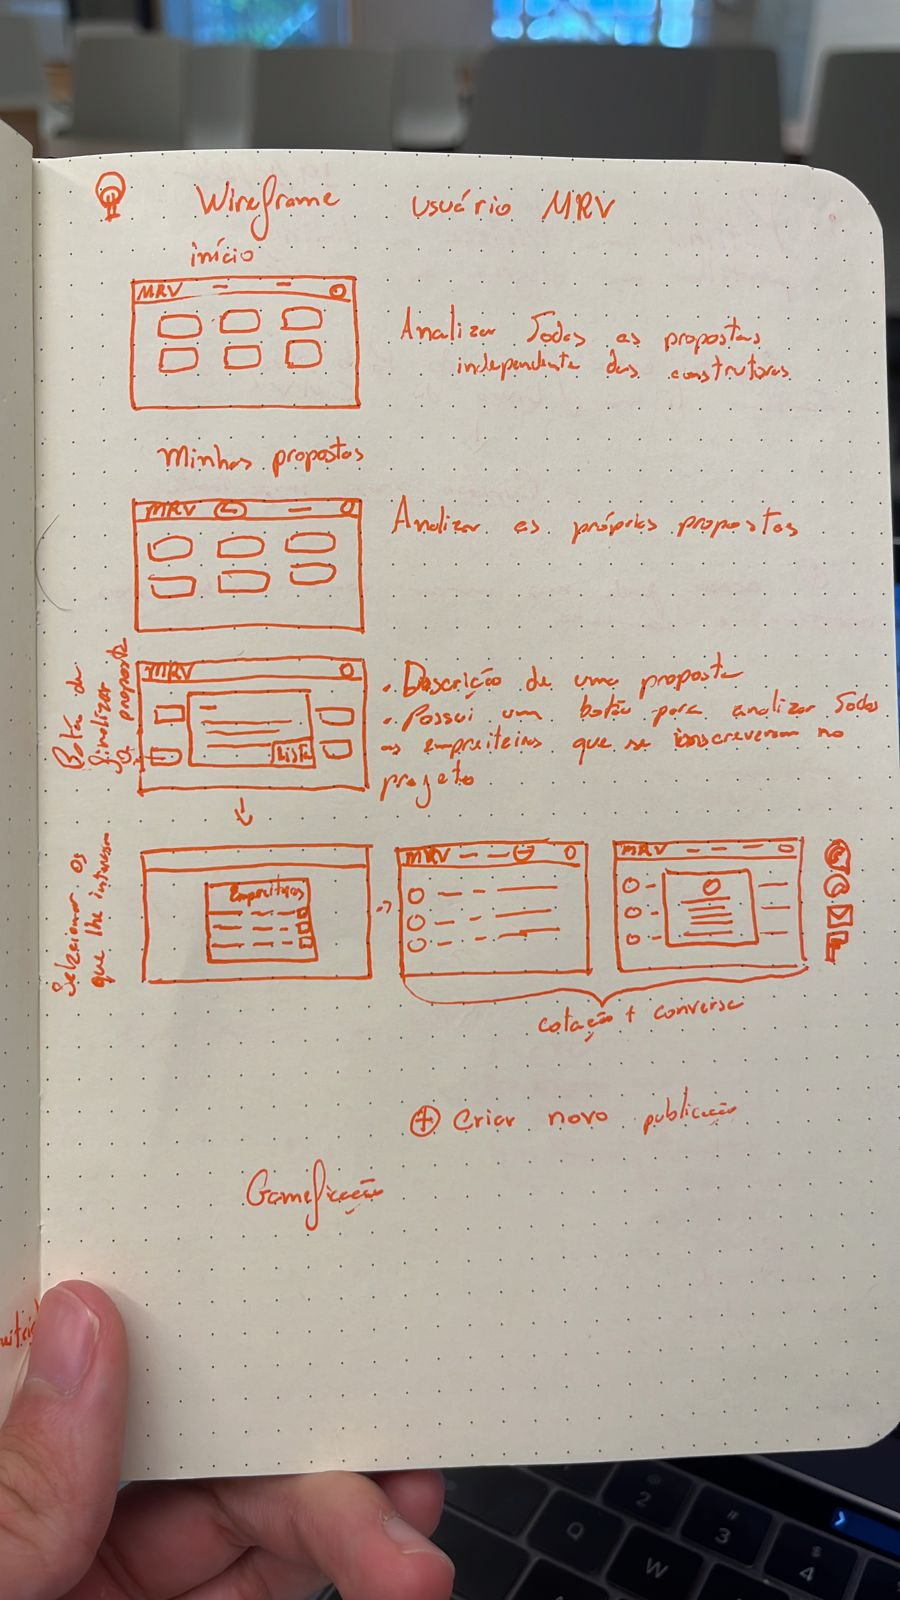 Wireframe usuário MRV
início
MRV
Analizar todas as propostas
independente das construtoras
Minhas propostas
MRV
Analizar as próprias propostas
Botão de
finalizar
proposta
MRV
Lista
. Descrição de uma proposta
. Possui um botão para analizar todos
os empreiteiros que se inscreveram no
projeto
Selecionar os
que lhe interessam
Empreiteiros
MRV
MRV
cotação + conversa
+ Criar novo publicação
Gameficação